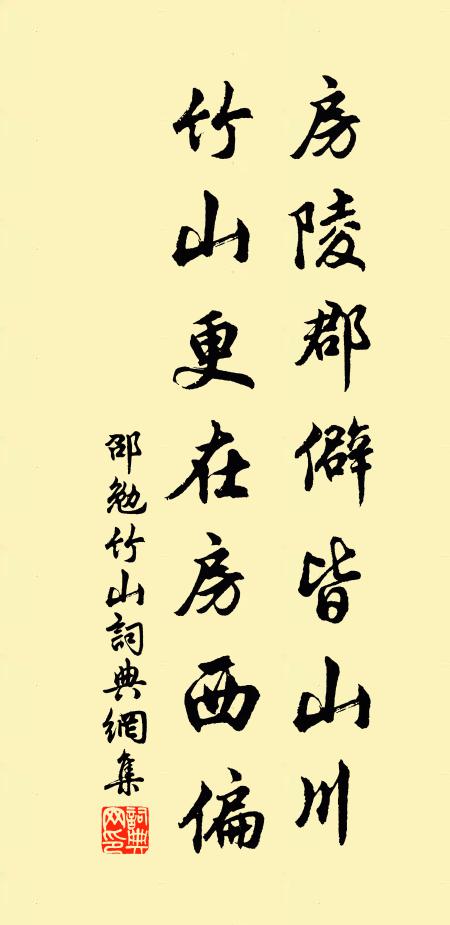 房陵郡僻皆山川
竹山更在房西偏
邵勉竹山詞典網集
詞典网印